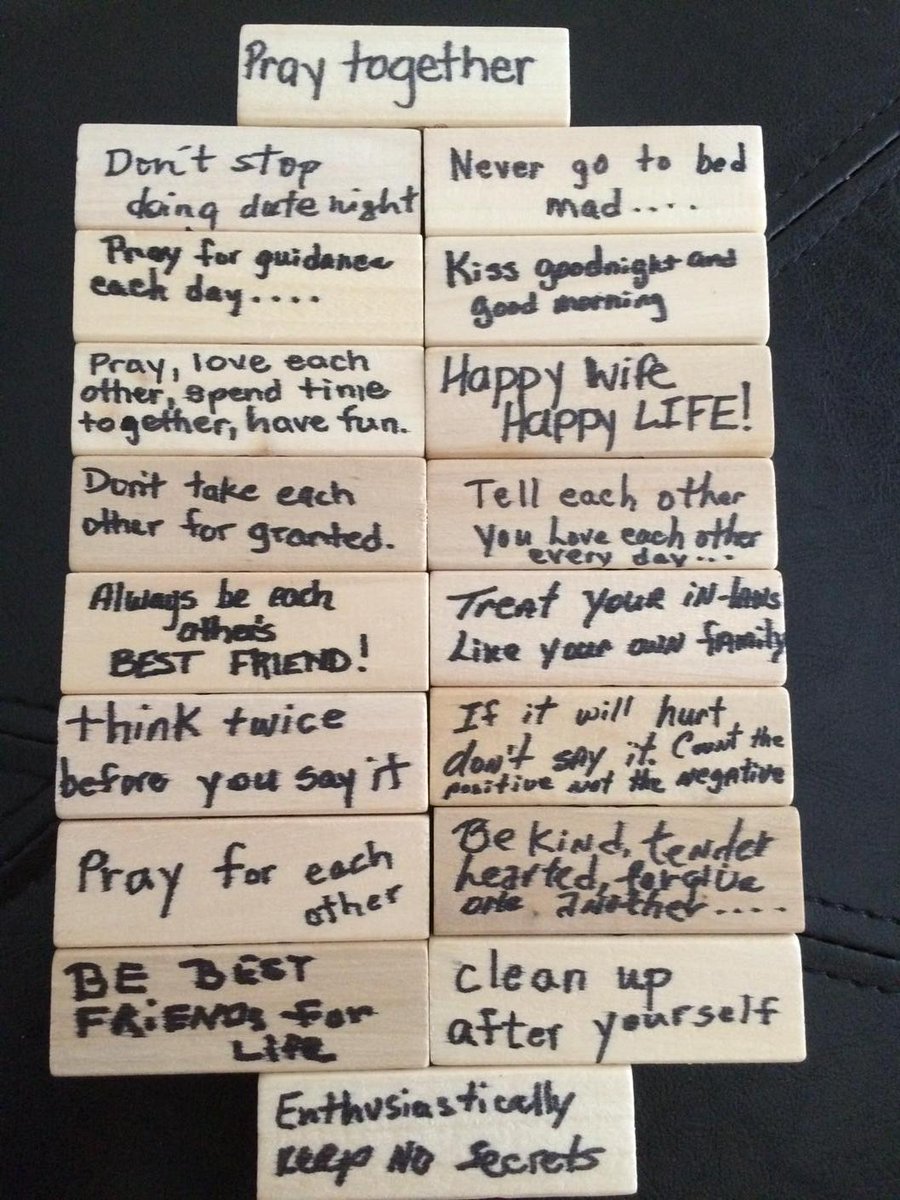 Pray together
Don't stop
doing date night
Never go to bed
mad....
Pray for guidance
each day....
Kiss goodnight and
good morning
Pray, love each
other, spend time
together, have fun.
Happy Wife
Happy LIFE!
Don't take each
other for granted.
Tell each other
you Love each other
every day...
Always be each
other's
BEST FRIEND!
Treat your in-laws
Like your own family
think twice
before you say it
If it will hurt
don't say it. Count the
positive not the negative
Pray for each
other
Be kind, tender
hearted, forgive
one another.....
BE BEST
FRIENDS for
LIFE
clean up
after yourself
Enthusiastically
KEEP NO secrets